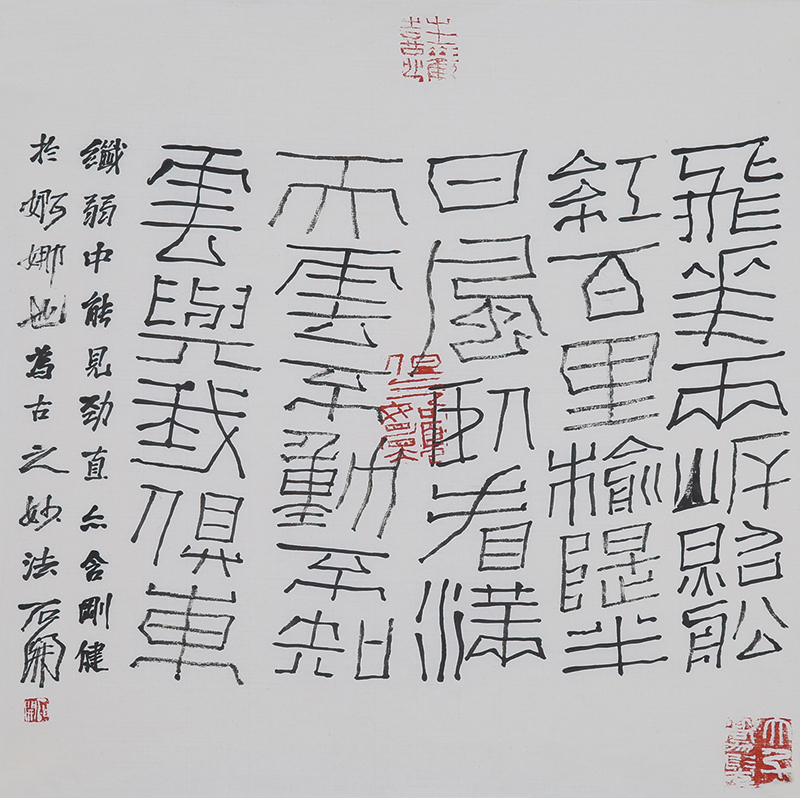 飛花兩岸照船
紅百里榆堤半
日風卧看滿
天雲不動不知
雲與我俱東
纖弱中能見勁直亦含剛健
於婀娜也為古之妙法石開